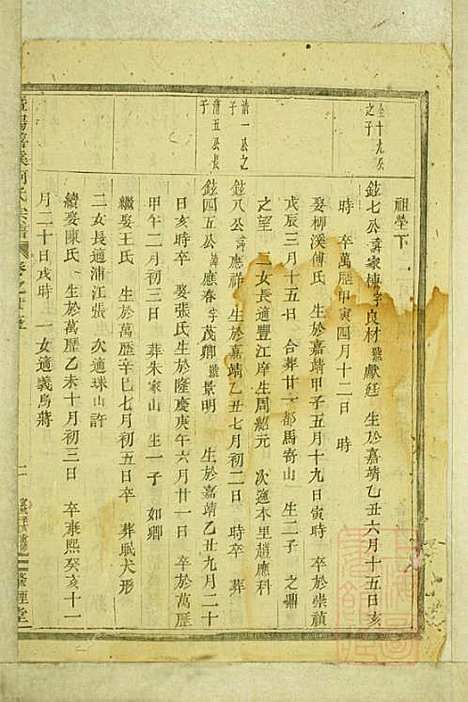 祖塋下
全十九公之子
鈜七公諱家槫字良材號獻廷 生於嘉靖乙丑六月十五日亥
時 卒萬歷甲寅四月十二日 時
娶柳溪傅氏 生於嘉靖甲子五月十九日寅時 卒於崇禎
戊辰三月十五日 合葬廿一都馬寄山 生二子 之鼎
之望 二女長適豐江岸生周紹元 次適本里趙應科
清一公之子
鈜八公諱應祥 生於嘉靖乙丑七月初二日 時卒 葬
清五公長子
鈜四五公諱應春字茂卿號景明 生於嘉靖乙丑九月二十
日亥時卒 娶張氏生於隆慶庚午六月廿一日 卒於萬歷
甲午二月初三日 葬朱家山 生一子 如卿
繼娶王氏 生於萬歷辛巳七月初五日卒 葬眠犬形
二女長適浦江張 次適珠山許
續娶陳氏 生於萬歷乙未十月初三日 卒康熙癸亥十一
月二十日戌時 一女適義烏蔣